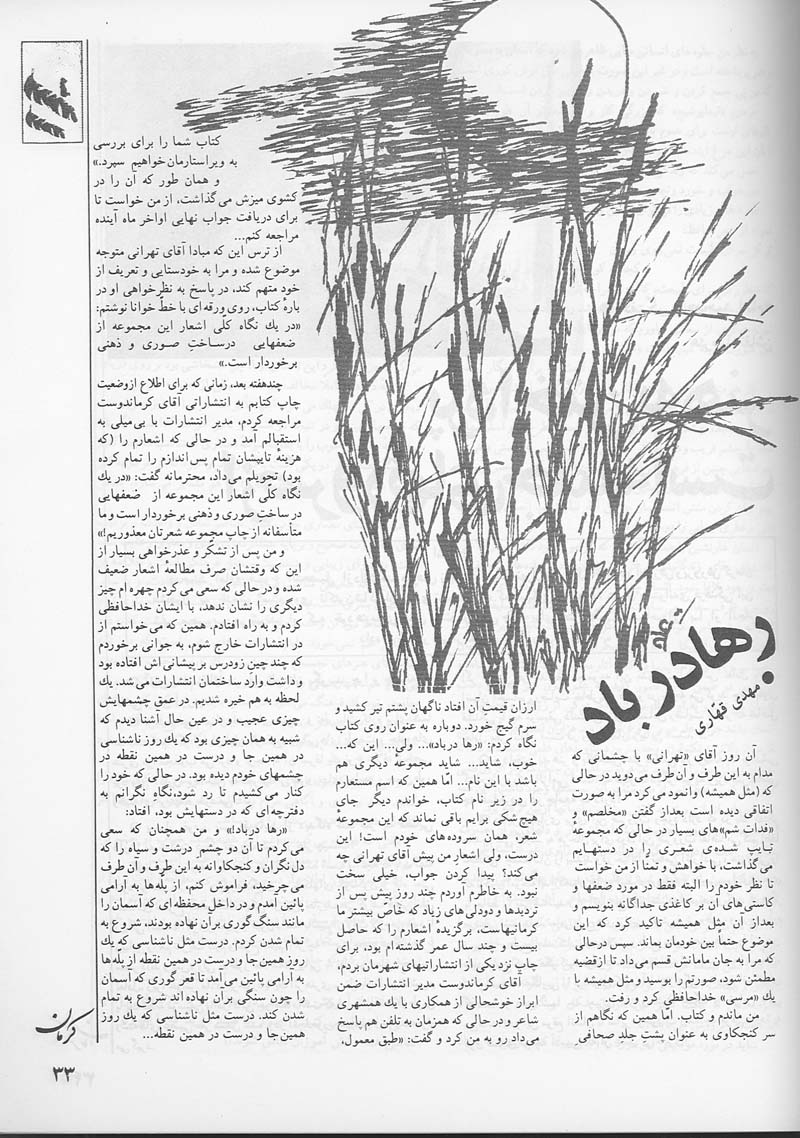 رها در باد
مهدی قهاری
آن روز آقای «تهرانی» با چشمانی که
مدام به این طرف و آن طرف می‌دوید در حالی
که (مثل همیشه) وانمود می‌کرد مرا به صورت
اتفاقی دیده است بعداز گفتن «مخلصم» و
«فدات شم»های بسیار در حالی که مجموعهٔ
تـایـپ شـده‌ی شعـری را در دستهـایم
می‌گذاشت، با خواهش و تمنّا از من خواست
تا نظر خودم را البته فقط در مورد ضعفها و
کاستی‌های آن بر کاغذی جداگانه بنویسم و
بعداز آن مثل همیشه تاکید کرد که این
موضوع حتماً بین خودمان بماند. سپس درحالی
که مرا به جان مامانش قسم می‌داد تا ازقضیه
مطمئن شود، صورتم را بوسید و مثل همیشه با
یك «مرسی» خداحافظی کرد و رفت.
من ماندم و کتاب. امّا همین که نگاهم از
سر کنجکاوی به عنوان پشتِ جلدِ صحافی ِ
ارزان قیمتِ آن افتاد ناگهان پشتم تیر کشید و
سرم گیج خورد. دوباره به عنوان روی کتاب
نگاه کردم: «رها درباد»... ولی... این که...
خوب، شاید... شاید مجموعهٔ دیگری هم
باشد با این نام... امّا همین که اسم مستعارم
را در زیر نام کتاب، خواندم دیگر جای
هیچ‌شکی برایم باقی نماند که این مجموعهٔ
شعر، همان سروده‌های خودم است! این
درست، ولی اشعارِ من پیش آقای تهرانی چه
می‌کند؟ پیدا کردن جواب، خیلی سخت
نبود. به خاطرم آوردم چند روز پیش پس از
تردیدها و دودلی‌های زیاد که خاصّ بیشتر ما
کرمانیهاست، برگزیدهٔ اشعارم را که حاصل
بیست و چند سال عمر گذشته‌ام بود، برای
چاپ نزد یکی از انتشاراتیهای شهرمان بردم،
آقای کرماندوست مدیر انتشارات ضمن
ابراز خوشحالی از همکاری با یك همشهری
شاعر و درحالی که همزمان به تلفن هم پاسخ
می‌داد رو به من کرد و گفت: «طبق معمول،
کتاب شما را برای بررسی
به ویراستارمان خواهیم سپرد.»
و همان طور که آن را در
کشوی میزش می‌گذاشت، از من خواست تا
برای دریافت جواب نهایی اواخر ماه آینده
مراجعه کنم...
از ترس این که مبادا آقای تهرانی متوجه
موضوع شده و مرا به خودستایی و تعریف از
خود متهم کند، در پاسخ به نظرخواهی او در
بارهٔ کتاب، روی ورقه‌ای با خطّ خوانا نوشتم:
«در یك نگاه کلّی اشعار این مجموعه از
ضعفهایی درسـاختِ صـوری و ذهنی
برخوردار است.»
چندهفته بعد، زمانی که برای اطلاع ازوضعیت
چاپ کتابم به انتشاراتی آقای کرماندوست
مراجعه کردم، مدیر انتشارات با بی‌میلی به
استقبالم آمد و در حالی که اشعارم را (که
هزینهٔ تایپشان تمام پس‌اندازم را تمام کرده
بود) تحویلم می‌داد، محترمانه گفت: «در یك
نگاه کلّی اشعار این مجموعه از ضعفهایی
در ساختِ صوری و ذهنی برخوردار است و ما
متأسفانه از چاپ مجموعه شعرتان معذوریم!»
و من پس از تشکّر و عذرخواهی بسیار از
این که وقتشان صرف مطالعهٔ اشعار ضعیف
شده و در حالی که سعی می‌کردم چهره‌ام چیز
دیگری را نشان ندهد، با ایشان خداحافظی
کردم و به راه افتادم. همین که می‌خواستم از
در انتشارات خارج شوم، به جوانی برخوردم
که چند چینِ زودرس بر پیشانی‌اش افتاده بود
و داشت وارد ساختمان انتشارات می‌شد. یك
لحظه به هم خیره شدیم. در عمق چشمهایش
چیزی عجیب و در عین حال آشنا دیدم که
شبیه به همان چیزی بود که یك روز ناشناسی
در همین جا و درست در همین نقطه در
چشمهای خودم دیده بود. در حالی که خود را
کنار می‌کشیدم تا رد شود،نگاهِ نگرانم به
دفترچه‌ای که در دستهایش بود، افتاد:
«رها درباد!» و من همچنان که سعی
می‌کردم تا آن دو چشم ِ درشت و سیاه را که
دل‌نگران و کنجکاوانه به این طرف و آن طرف
می‌چرخید، فراموش کنم، از پلّه‌ها به آرامی
پائین آمدم و در داخل محفظه‌ای که آسمان را
مانند سنگ گوری بر آن نهاده بودند، شروع به
تمام شدن کردم. درست مثل ناشناسی که یك
روز همین جا و درست در همین نقطه از پلّه‌ها
به آرامی پائین می‌آمد تا قعر گوری که آسمان
را چون سنگی برآن نهاده‌اند شروع به تمام
شدن کند. درست مثل ناشناسی که یك روز
همین جا و درست در همین نقطه...
کرمان
۳۳